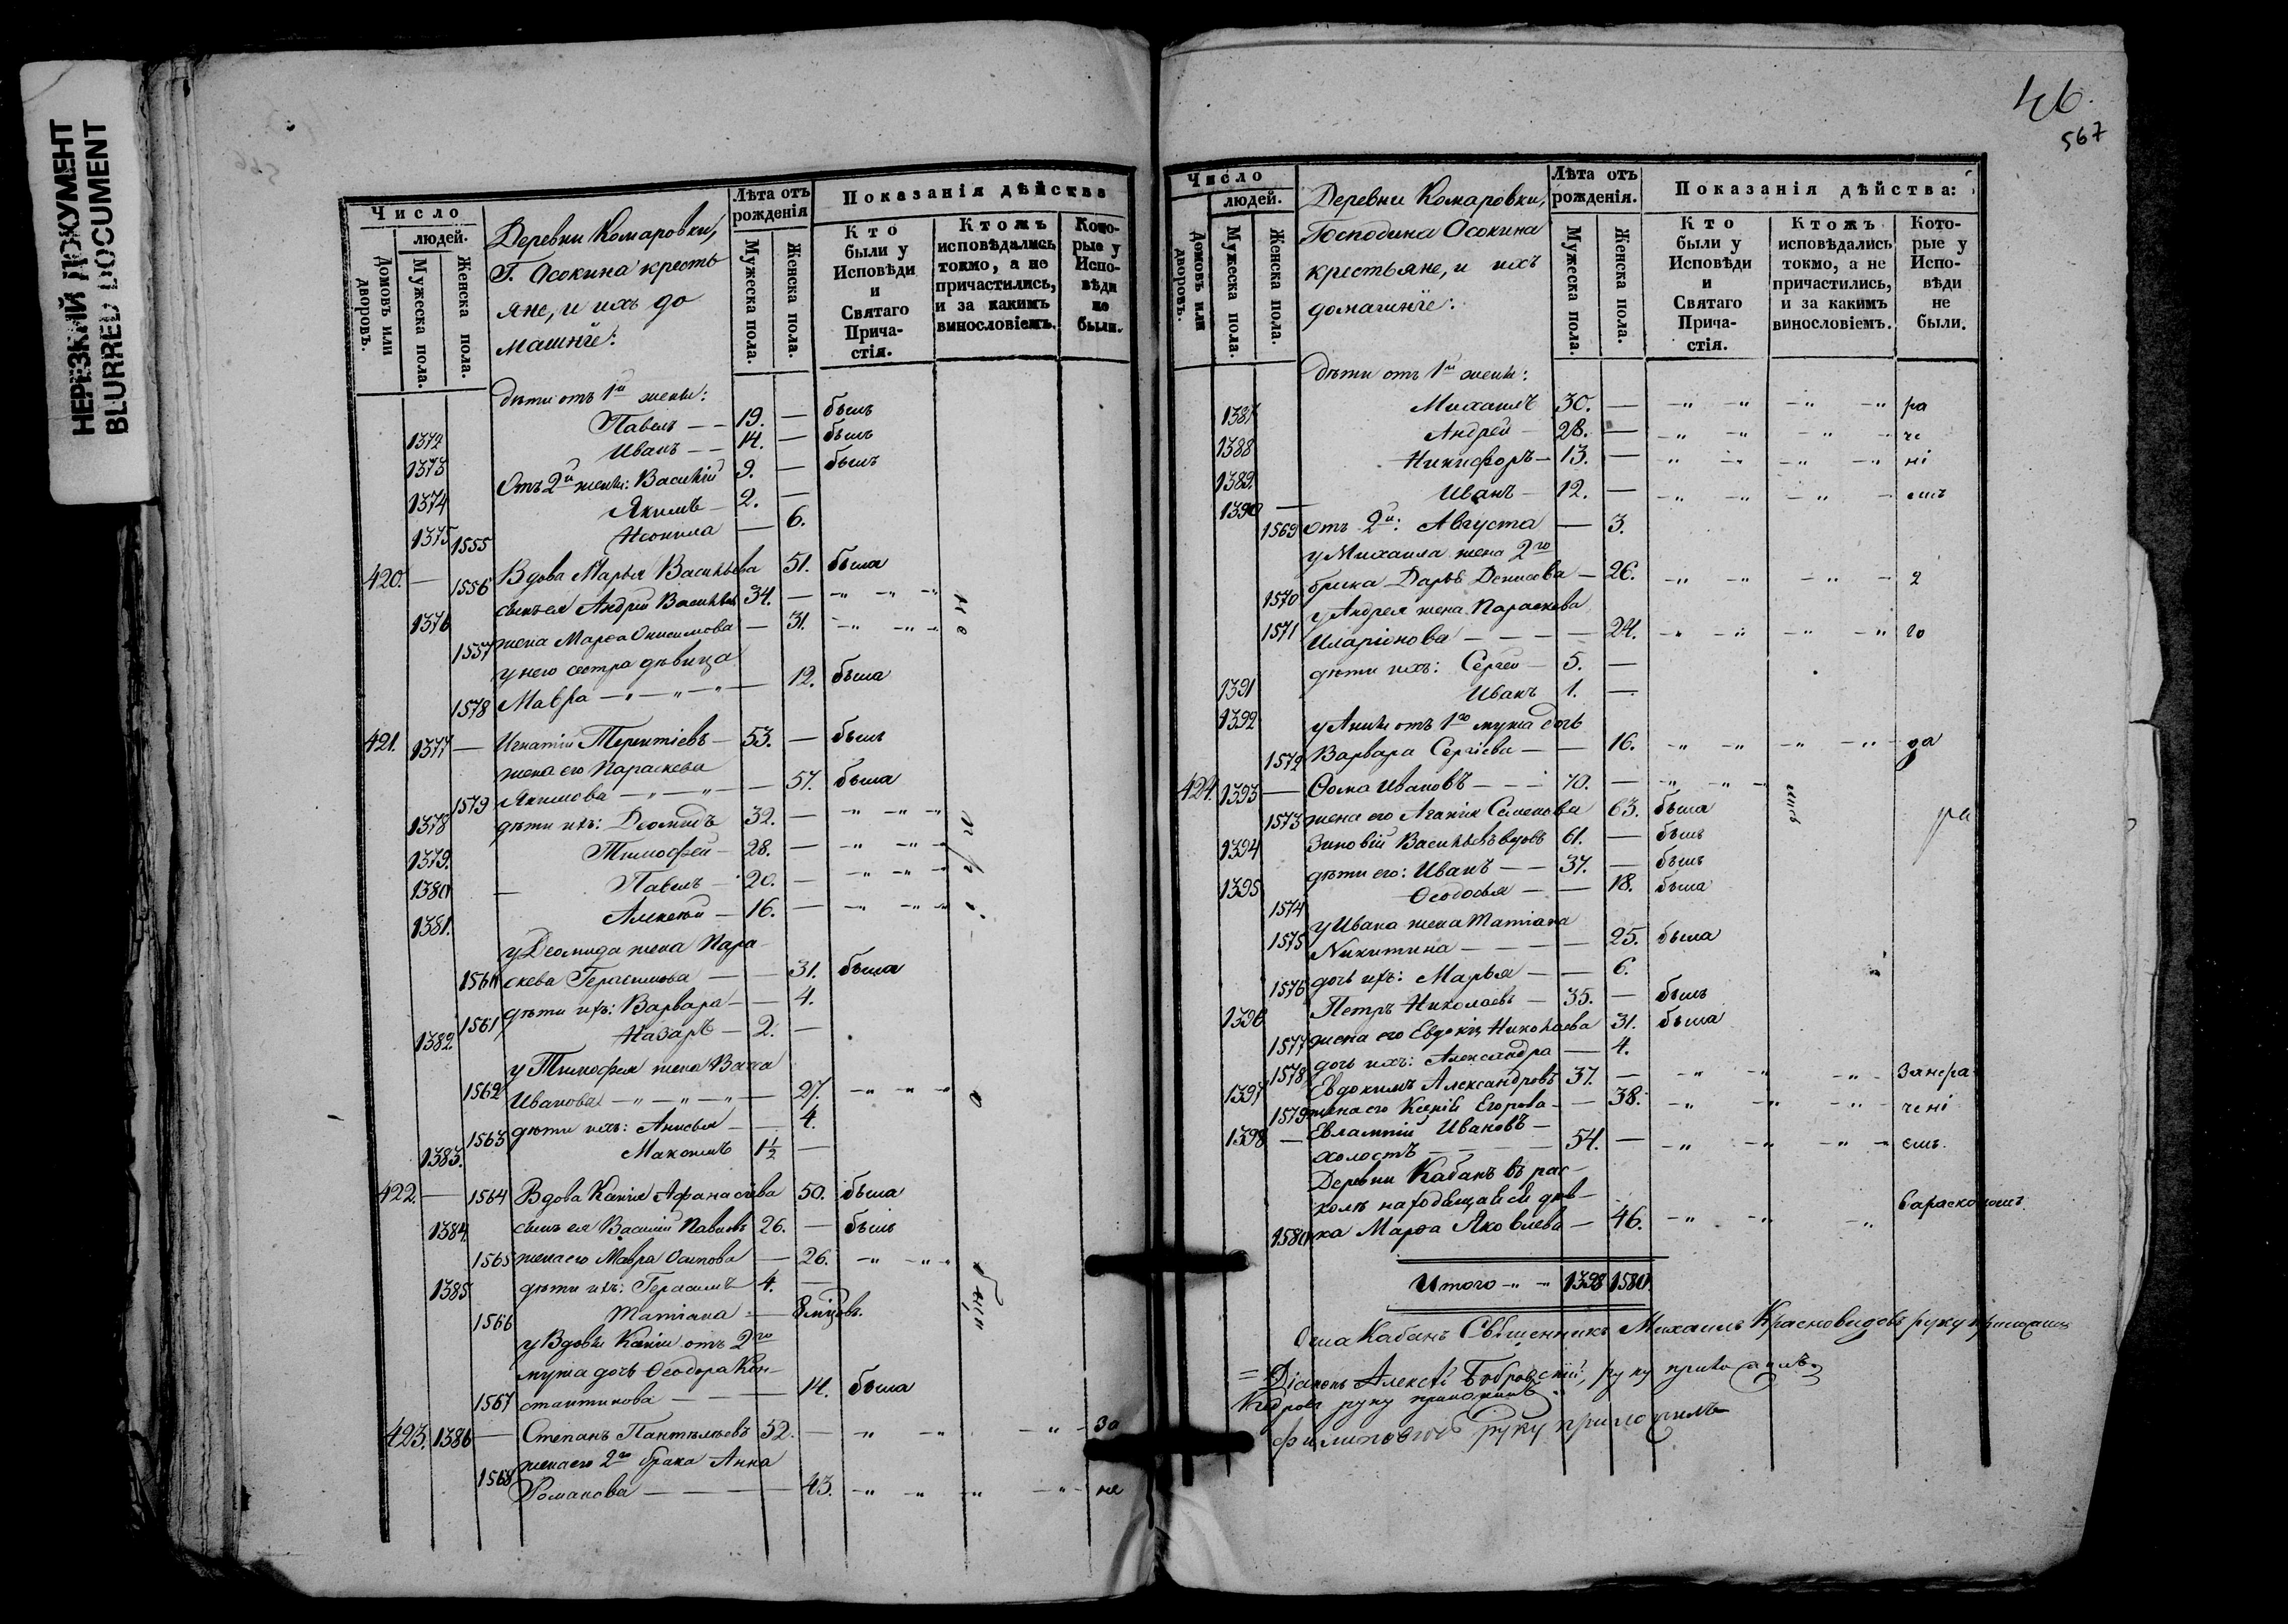 НЕРЕЗКИЙ ДОКУМЕНТ
BLURRED DOCUMENT
Число
людей.
Домовъ или дворовъ.
Мужеска пола.
Женска пола.
Деревни Комаровки,
Г. Осокина кресть
яне, и ихъ до
машніе:
Лѣта отъ рожденія
Мужеска пола.
Женска пола.
Показанія дѣйства
Кто были у Исповѣди и Святаго Причастія.
Ктожъ исповѣдались токмо, а не причастились, и за какимъ винословіемъ.
Которые у Исповѣди не были.
дѣти отъ 1й жены:
1372 Павелъ — — 19. — былъ
1373 Иванъ — — 14. — былъ
1374 Отъ 2й жены: Василій 9. — былъ
1375 Якимъ — 2. —
1555 Неонила — 6.
420. — 1556 Вдова Марья Васильева 51. была
1376 сынъ ея Андрей Васильевъ 34. — -"- -"- -"-
1557 жена Марѳа Онисимова — 31. -"- -"-
у него сестра дѣвица
1578 Мавра — " — " — 12. была
421. 1377 — Игнатій Терентіевъ — 53. — былъ
жена его Параскева
1579 Якимова — " — " — 57. была
1378 дѣти ихъ: Деомидъ 32. — -"- -"- -"-
1379. Тимофей — 28. — -"- -"- -"-
1380 — Павелъ — 20. — -"- -"- -"-
1381. Алексѣй — 16. — -"- -"- -"-
у Деомида жена Пара-
1560 скева Герасимова — — 31. была
1561 дѣти ихъ: Варвара — — 4.
1382. Назаръ — 2. —
у Тимофея жена Васса
1562 Иванова — " — " — " — 27. -"- -"- -"-
1563 дѣти ихъ: Анисья — — 4.
1383. Максимъ 1½ —
422. — 1564 Вдова Ксенія Афанасіева 50. была
1384. сынъ ея Василій Павловъ 26. — былъ
1565 жена его Мавра Осипова — 26. -"- -"-
1385 дѣти ихъ: Герасимъ 4. —
1566 Татіана — 8 мцовъ.
у Вдовы Ксеніи отъ 2го
мужа дочь Ѳеодора Кон-
1567 стантинова — — 14. была
423. 1386 — Степанъ Пантелѣевъ 52. — -"- -"- -"- За
жена его 2го брака Анна
1568 Романова — — — 43. -"- -"- -"- -"- не
46.
567
Число
людей.
Домовъ или дворовъ.
Мужеска пола.
Женска пола.
Деревни Комаровки,
Господина Осокина
крестьяне, и ихъ
домашніе:
Лѣта отъ рожденія.
Мужеска пола.
Женска пола.
Показанія дѣйства:
Кто были у Исповѣди и Святаго Причастія.
Ктожъ исповѣдались токмо, а не причастились, и за какимъ винословіемъ.
Которые у Исповѣди не были.
дѣти отъ 1й жены:
1387 Михаилъ 30. — -"- -"- -"- -"- ра
1388 Андрей — 28. — -"- -"- -"- -"- че
1389. Никифоръ — 13. — -"- -"- -"- -"- ні
1390 — Иванъ — 12. — -"- -"- -"- емъ
1569 отъ 2й: Августа — 3.
у Михаила жена 2го
1570 брака Дарья Денисова — 26. -"- -"- -"- 2
у Андрея жена Параскева
1571 Иларіонова — — — 24. -"- -"- -"- -"- го
1391 дѣти ихъ: Сергей — 5. —
1392 Иванъ 1. —
у Анны отъ 1го мужа дочь
1572 Варвара Сергіева — — 16. -"- -"- -"- -"- да
424. 1393 — Ѳома Ивановъ — — 70. — -"- -"- -"-
1573 жена его Агапія Семенова 63. была
1394 Зиновій Васильевъ вдовъ 61. — былъ
1395 дѣти его: Иванъ — — 37. — былъ
1574 Ѳеодосья — — 18. была
у Ивана жена Татіана
1575 Никитина — — — 25. была
1576 дочь ихъ: Марья — — 6.
1396 Петръ Николаевъ — 35. — былъ
1577 жена его Евдокія Николаева 31. была
1578 дочь ихъ: Александра — 4.
1397 Евдокимъ Александровъ 37. — -"- -"- -"- За нера
1579 жена его Ксенія Егорова — — 38. -"- -"- -"- чені
1398 — Евлампій Ивановъ —
холостъ — — — 54. — -"- -"- -"- емъ.
Деревни Кабанъ въ рас-
колѣ находящаяся дѣв-
1580 ка Марѳа Яковлева — 46. -"- -"- -"- за расколомъ.
Итого -"- -"- 1398 1580.
Села Кабанъ Священникъ Михаилъ Красновидовъ руку приложилъ
= Діаконъ Алексѣй Бобровскій, руку приложилъ.
Кедровъ руку приложилъ.
Филиповъ руку приложилъ